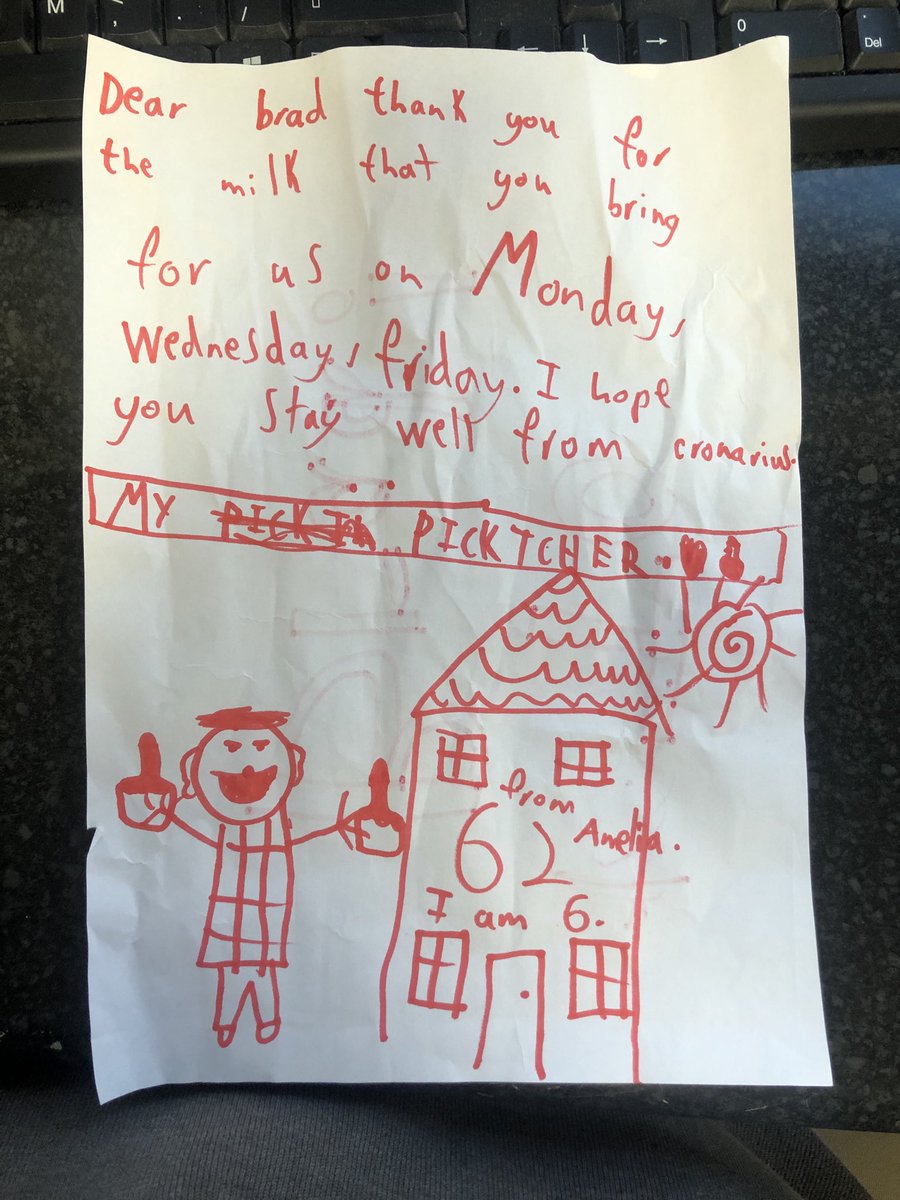 Dear brad thank you for
the milk that you bring
for us on Monday,
Wednesday, friday. I hope
you stay well from cronarius.
MY PICKTCHER.
from
62 Amelia.
I am 6.
M
0
Del